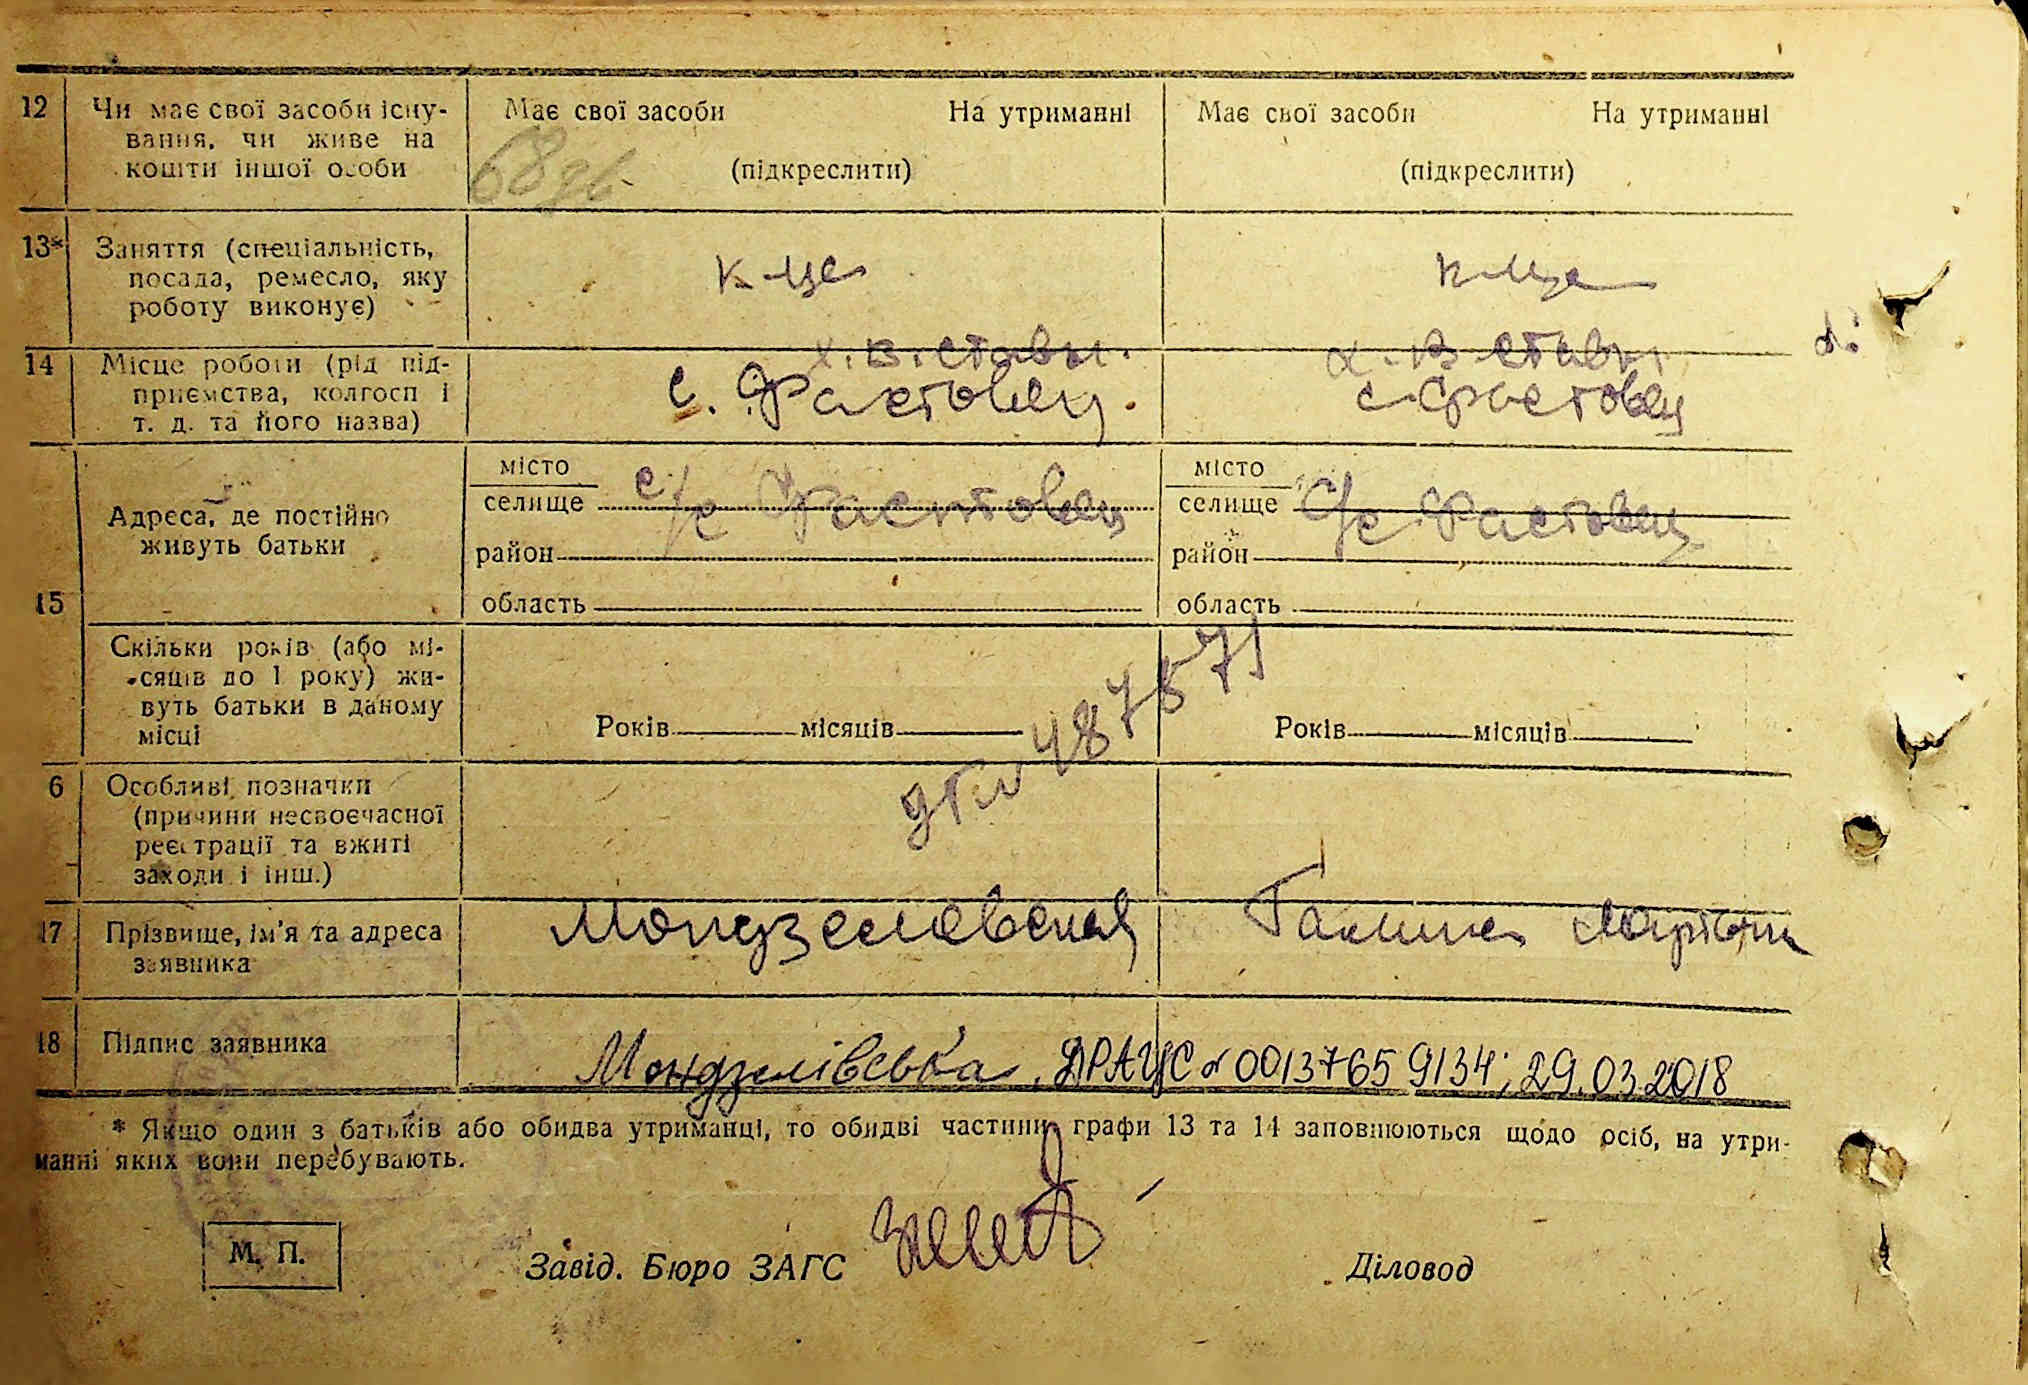 12 Чи має свої засоби існу-
вання, чи живе на
кошти іншої особи
Має свої засоби На утриманні
(підкреслити)
Має свої засоби На утриманні
(підкреслити)
68
13* Заняття (спеціальність,
посада, ремесло, яку
роботу виконує)
к-ця
к-ця
14 Місце роботи (рід під-
приємства, колгосп і
т. д. та його назва)
х. В. стави.
с. Фастовец
х. В стави
с. Фастовец
15 Адреса, де постійно
живуть батьки
місто
селище с/с Фастовец
район
область
місто
селище с/с Фастовец
район
область
Скільки років (або мі-
сяців до 1 року) жи-
вуть батьки в даному
місці
Років місяців
Років місяців
487571
6 Особливі позначки
(причини несвоєчасної
реєстрації та вжиті
заходи і інш.)
17 Прізвище, ім'я та адреса
заявника
Мондзелевская Галина
18 Підпис заявника
Мондзелівська, ДРАЦС 00137659134; 29.03.2018
* Якщо один з батьків або обидва утриманці, то обидві частини графи 13 та 14 заповнюються щодо осіб, на утри-
манні яких вони перебувають.
М. П.
Завід. Бюро ЗАГС
Діловод